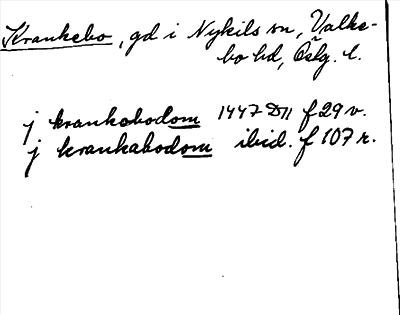 Krankebo, gd i Nykils sn, Valke-
bo hd, Östg. l.
j krankabodom 1447 D11 f 29 v.
j krankabodom ibid. f 107 r.